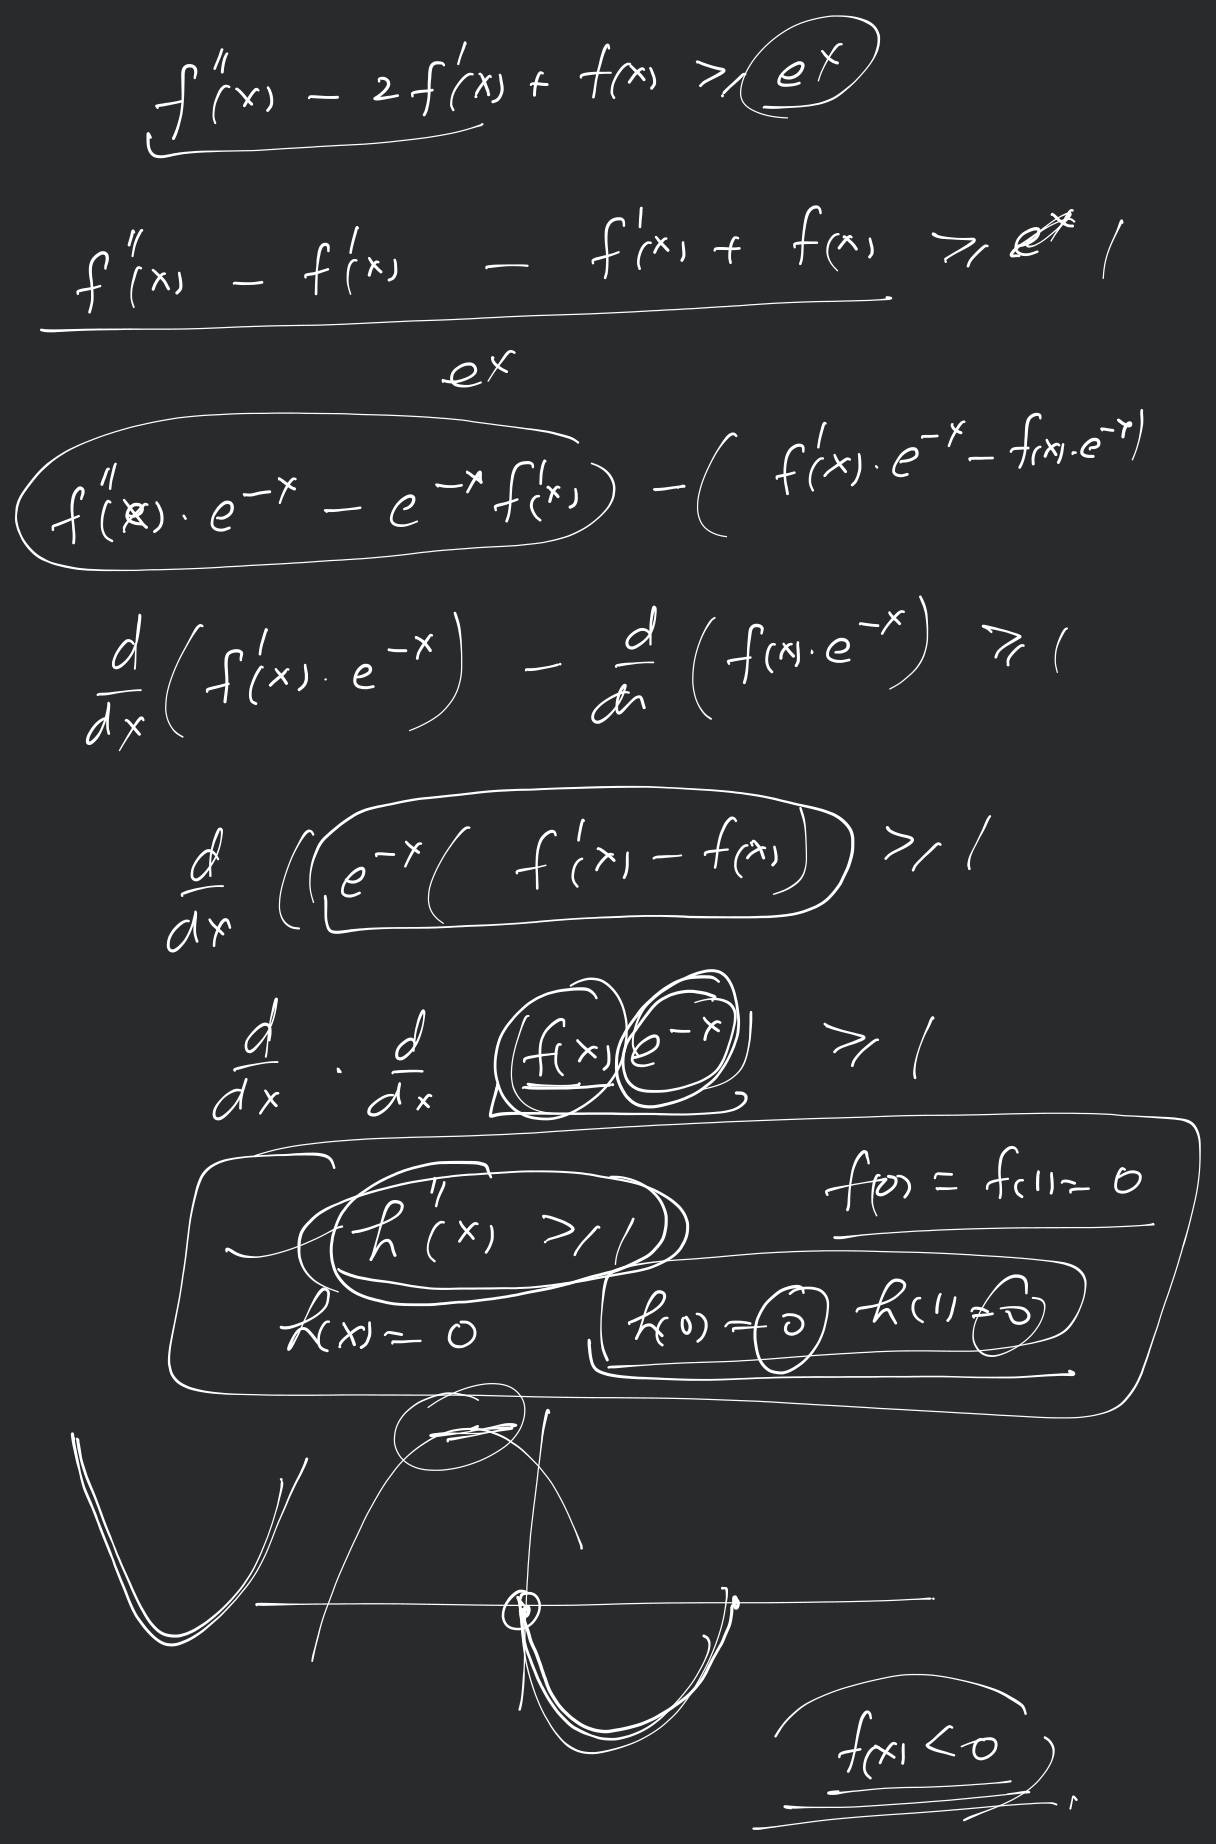 f''(x) - 2f'(x) + f(x) ≥ e^x
f''(x) - f'(x) - f'(x) + f(x) ≥ e^x 1
e^x
f''(x) · e^-x - e^-x f'(x) - ( f'(x) · e^-x - f(x) · e^-x )
d/dx ( f'(x) · e^-x ) - d/dx ( f(x) · e^-x ) ≥ 1
d/dx ( e^-x ( f'(x) - f(x) ) ≥ 1
d/dx · d/dx ( f(x) e^-x ) ≥ 1
h''(x) ≥ 1 f(0) = f(1) = 0
h(x) = 0 h(0) = 0 h(1) = 0
f(x) < 0